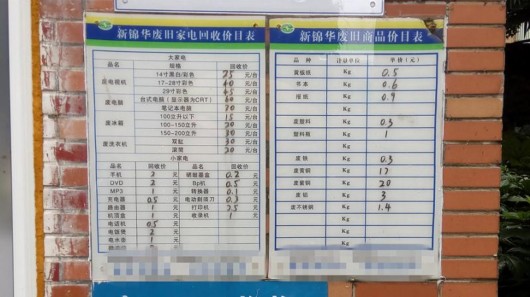 新锦华废旧家电回收价目表
大家电
品名 规格 回收价
废电视机 14寸黑白/彩色 25 元/台
17-28寸彩色 40 元/台
29寸彩色 45 元/台
废电脑 台式电脑(显示器为CRT) 60 元/台
笔记本电脑 70 元/台
废冰箱 100立升以下 15 元/台
100-150立升 20 元/台
150-200立升 30 元/台
废洗衣机 双缸 30 元/台
滚筒 30 元/台
小家电
品名 回收价 品名 回收价
手机 2 元 硬盘基盒 0.2 元
DVD 2 元 Bp机 0.5 元
MP3 1 元 转换器 0.1 元
充电器 0.5 元 电动剃须刀 0.3 元
路由器 1 元 打印机 2.5 元
机顶盒 1 元 收录机 1 元
电话机 0.5 元
电饭煲 2 元
电水壶 1 元
新锦华废旧商品价目表
品 种 计量单位 单价(元)
黄板纸 Kg 0.5
书本 Kg 0.6
报纸 Kg 0.9
Kg
废塑料 Kg 0.5
塑料瓶 Kg 1
Kg
废铁 Kg 0.5
废黄铜 Kg 17
废紫铜 Kg 20
废铝 Kg 3
废不锈钢 Kg 1.4
Kg
Kg
Kg